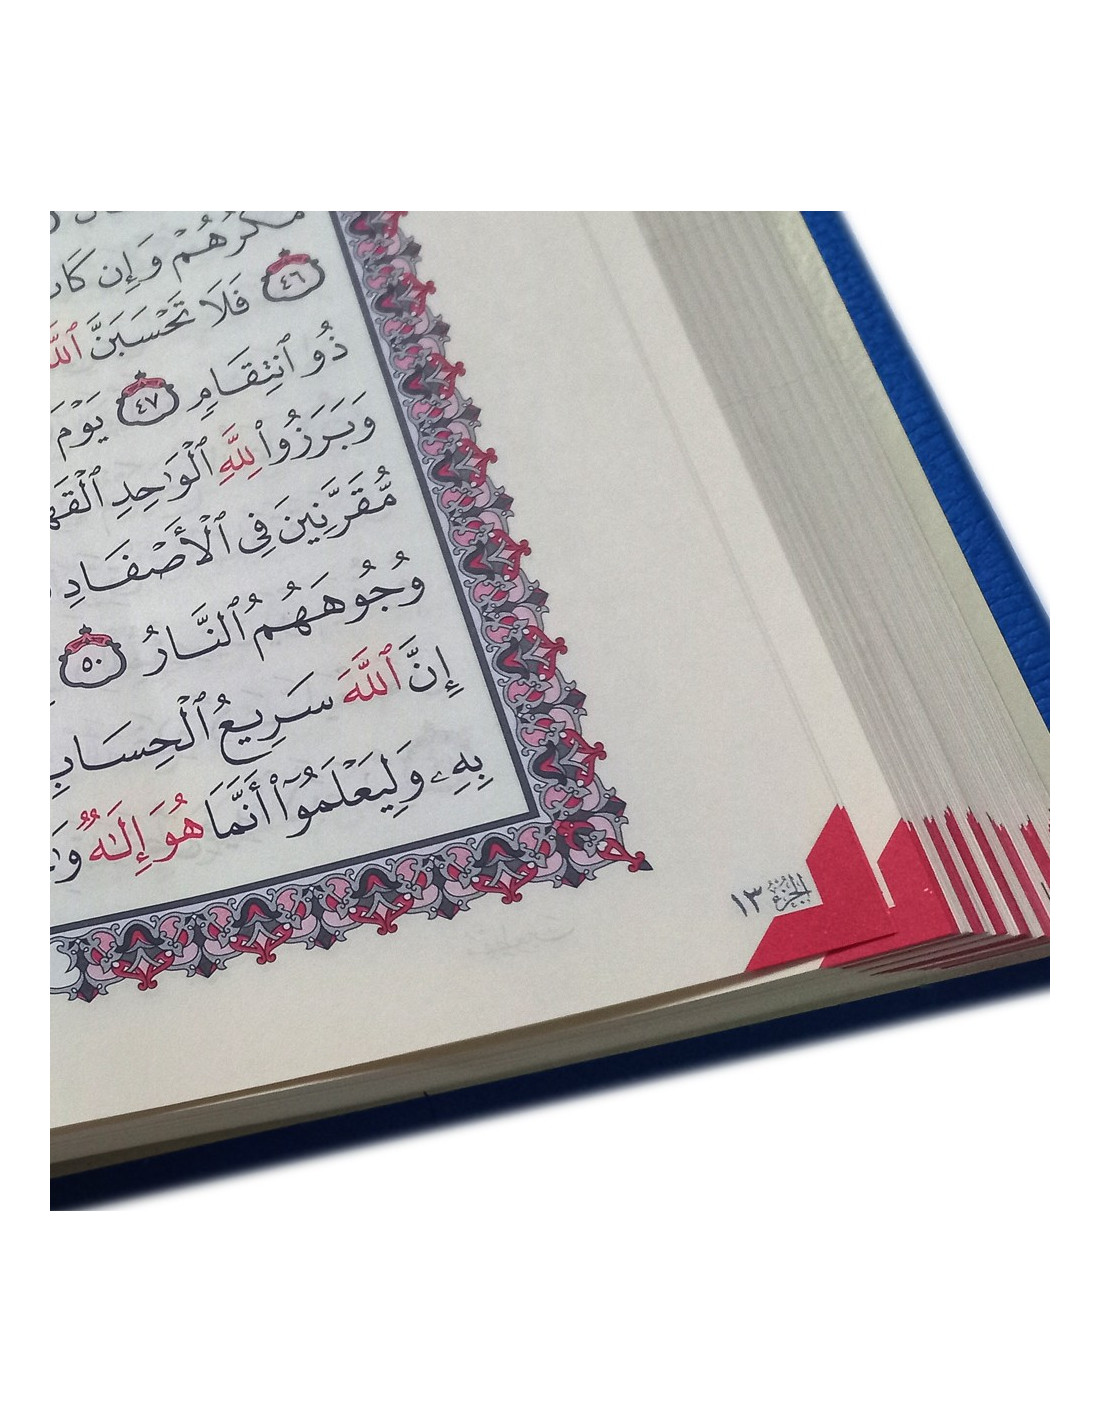 مَكْرُهُمْ وَإِن كَانَ
٤٦ فَلَا تَحْسَبَنَّ ٱللَّهَ
ذُو ٱنتِقَامٍ ٤٧ يَوْمَ
وَبَرَزُوا۟ لِلَّهِ ٱلْوَٰحِدِ ٱلْقَهَّارِ
مُّقَرَّنِينَ فِى ٱلْأَصْفَادِ
وُجُوهَهُمُ ٱلنَّارُ ٥٠
إِنَّ ٱللَّهَ سَرِيعُ ٱلْحِسَابِ
بِهِۦ وَلِيَعْلَمُوٓا۟ أَنَّمَا هُوَ إِلَٰهٌ
الجزء ١٣